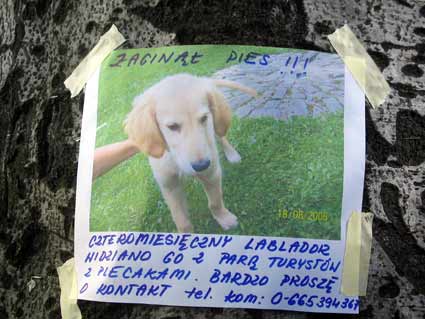 ZAGINĄŁ PIES !!!
18/06/2006
CZTEROMIESIĘCZNY LABLADOR
WIDZIANO GO Z PARĄ TURYSTÓW
Z PLECAKAMI. BARDZO PROSZĘ
O KONTAKT tel. kom: 0-665394367